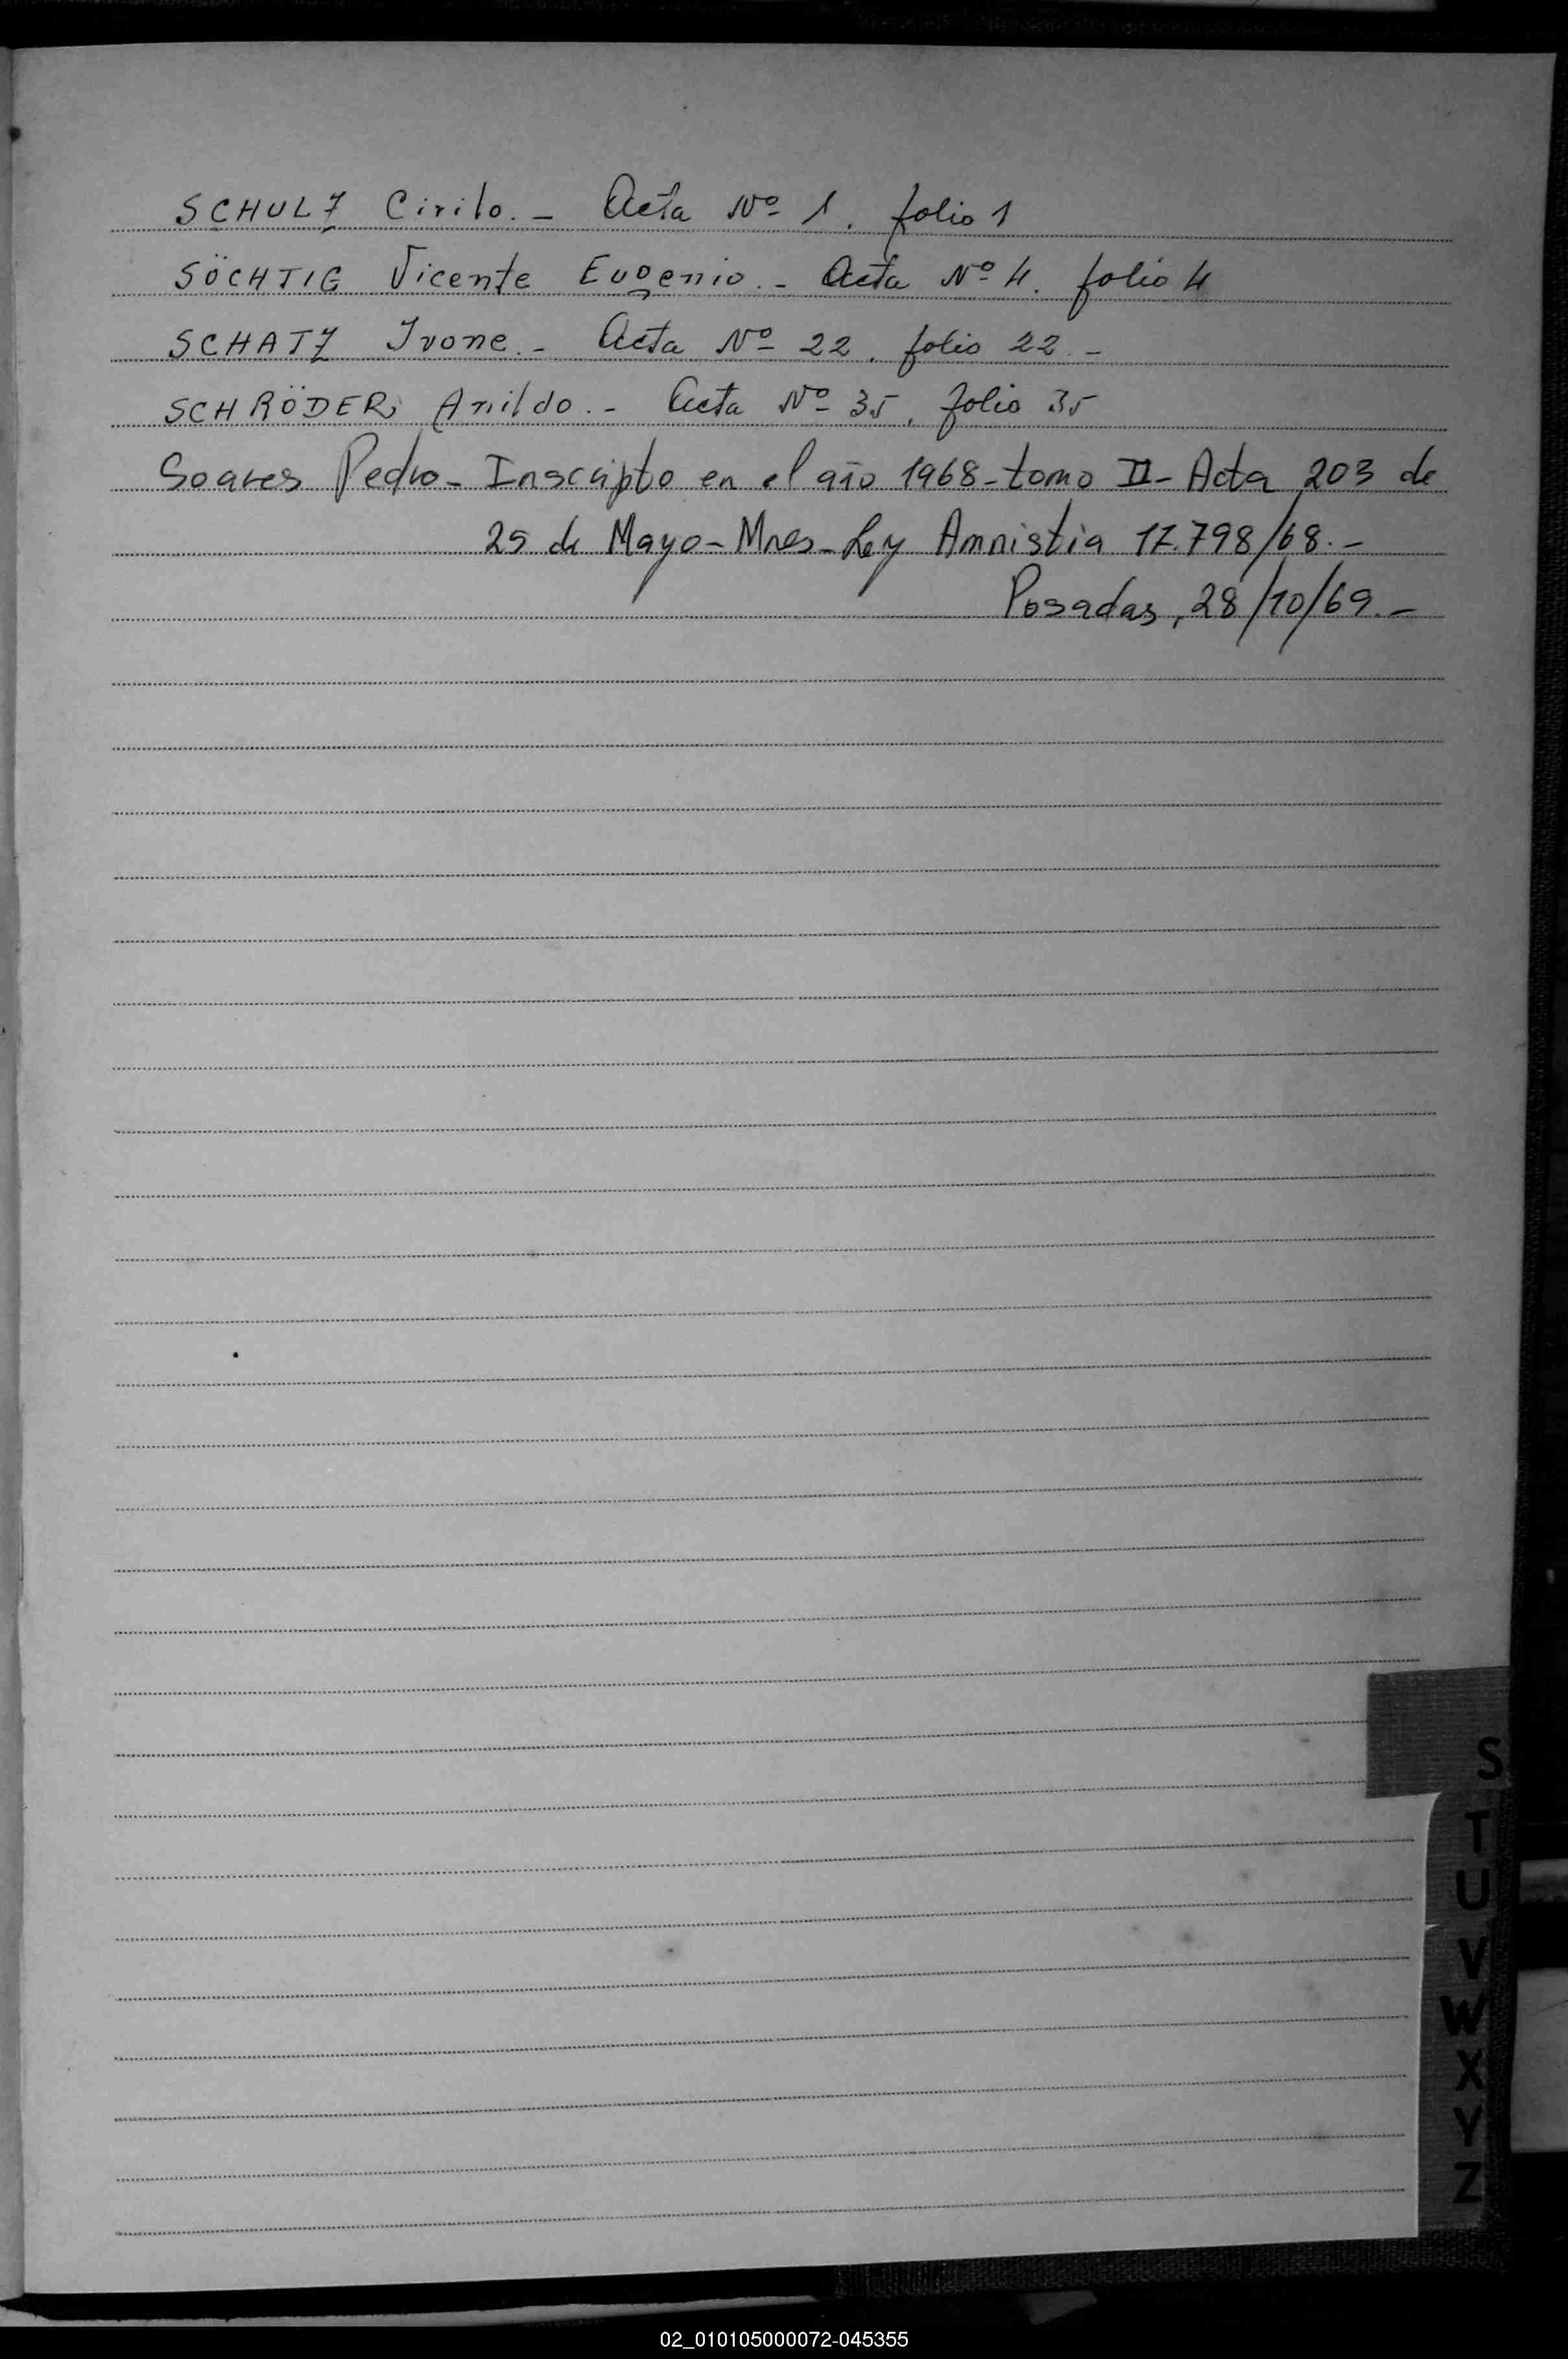 SCHULZ Cirilo. - Acta Nº 1. folio 1
SÖCHTIG Vicente Eugenio. - Acta Nº 4. folio 4
SCHATZ Ivone. - Acta Nº 22. folio 22. -
SCHRÖDER, Anildo. - Acta Nº 35. folio 35
Soares Pedro - Inscripto en el año 1968 - tomo II - Acta 203 de
25 de Mayo - Mnes - Ley Amnistia 17.798/68. -
Posadas, 28/10/69. -
S
T
U
V
W
X
Y
Z
02_010105000072-045355